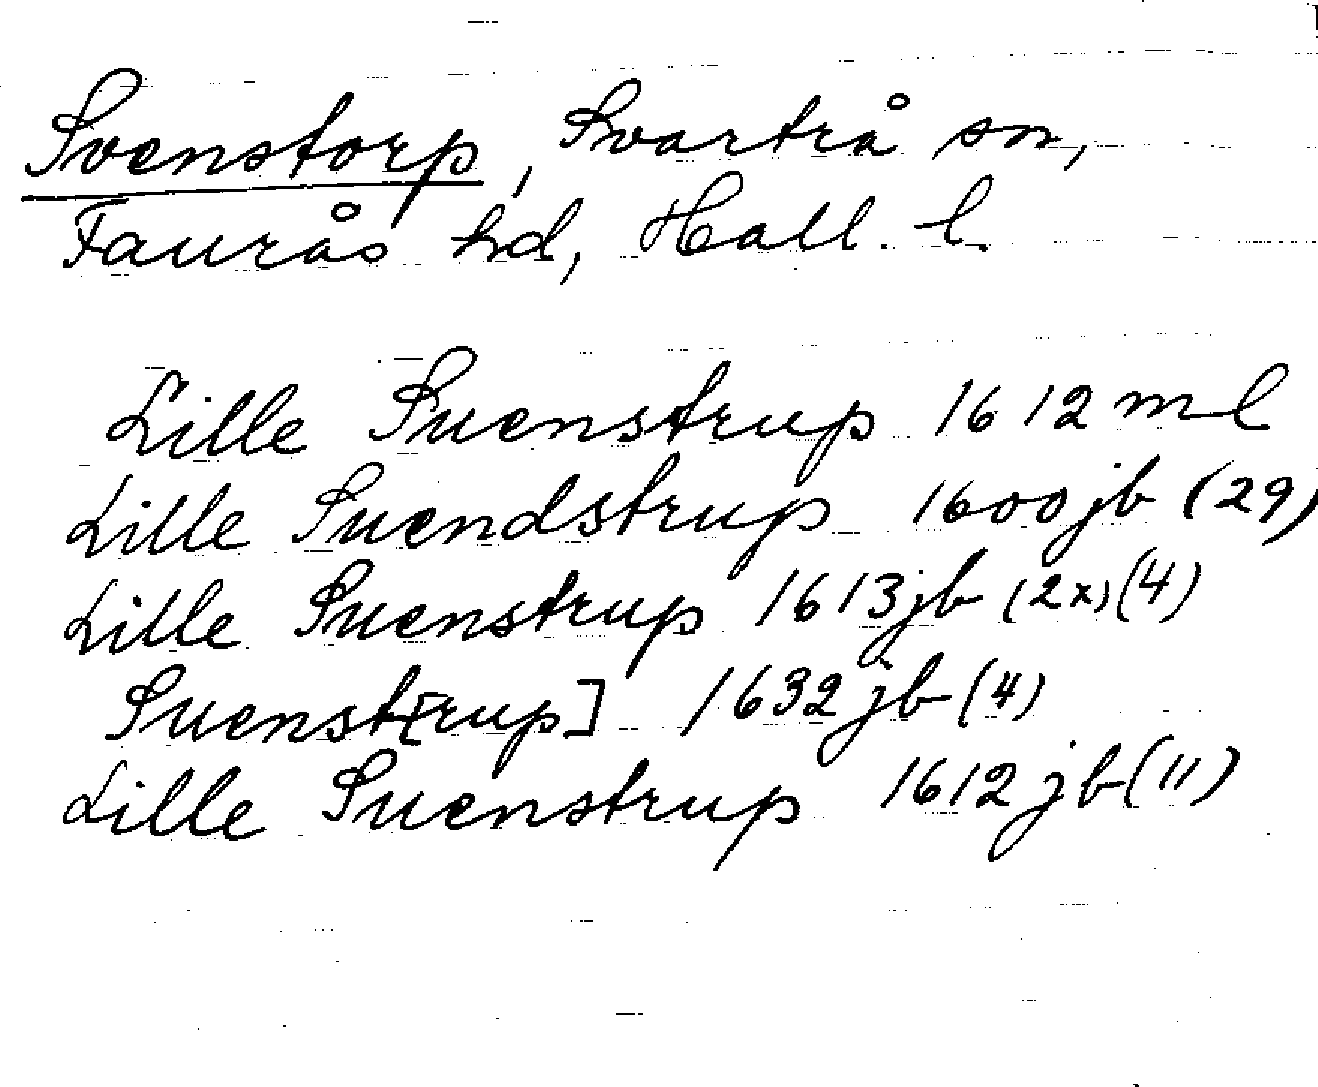 Svenstorp, Svartrå sn,
Faurås hd, Hall. l.
Lille Suenstrup 1612 ml
Lille Suendstrup 1600 jb (29)
Lille Suenstrup 1613 jb (2x) (4)
Suenst[rup] 1632 jb (4)
Lille Suenstrup 1612 jb (11)